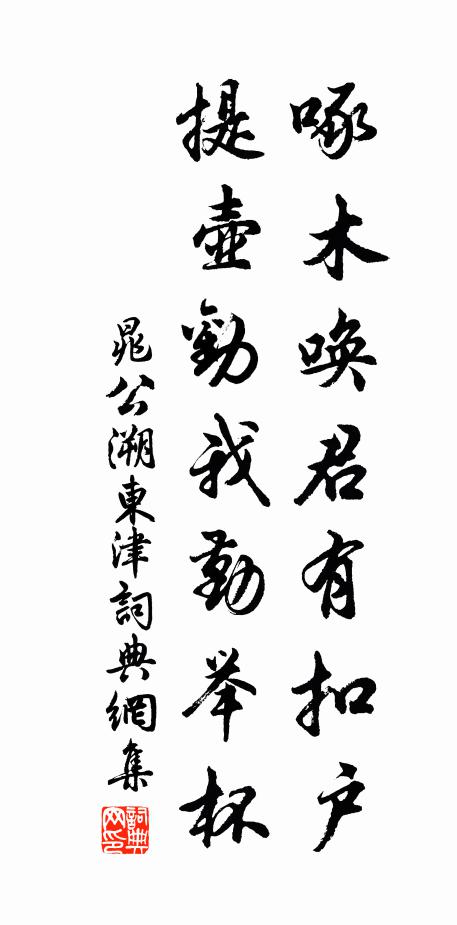 啄木唤君有扣户
提壺勸我勤举杯
晁公溯東津詞典網集
詞典网印